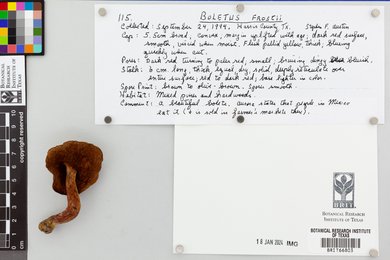 115. BOLETUS FROSTII
Collected: September 24, 1994, Harris County Tx. Stephen F. Austin
Cap: 5.5cm broad, convex, margin uplifted with age; dark red surface,
smooth, viscid when moist. Flesh pallid yellow, thick, bluing
quickly when cut.
Pores: Dark red turning to paler red, small; bruising dingy blueish.
Stalk: 6 cm. long, thick, equal, dry, solid, deeply reticulate over
entire surface; red to dark red; base lighter in color.
Spore Print: brown to olive-brown. Spores smooth.
Habitat: Mixed pines and hardwoods.
Comment: A beautiful bolete. Aurora states that people in Mexico
eat it (it is sold in farmer's markets there).
BRIT
BOTANICAL RESEARCH
INSTITUTE OF TEXAS
18 JAN 2024 IMG
BOTANICAL RESEARCH INSTITUTE
OF TEXAS
BRIT66803
copyright reserved
cm